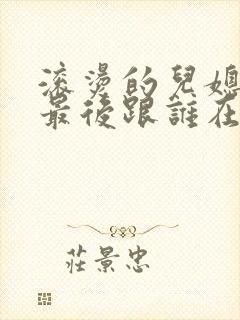 滚燙的兒媳
最後跟誰在
莊景忠